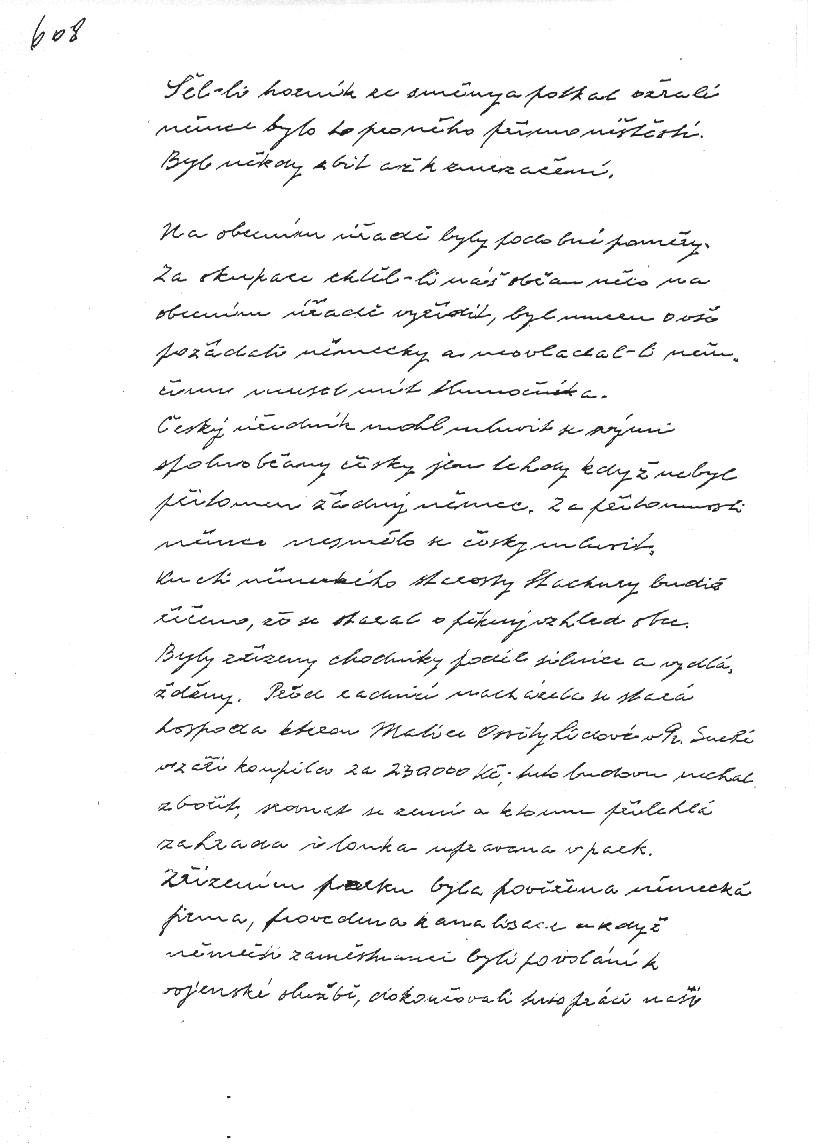 608
Šel-li horník ze směny a potkal ožralé
němce bylo to pro něho přímo neštěstí.
Byl někdy zbit až k zmrzačení.
Na obecním úřadě byly podobné poměry.
Za okupace chtěl-li náš občan něco na
obecním úřadě vyřídit, byl nucen o vše
požádati německy a neovládal-li něm-
činu musel mít tlumočníka.
Český úředník mohl mluvit se svými
spoluobčany česky jen tehdy když nebyl
přítomen žádný němec. Za přítomnosti
němce nesmělo se česky mluvit.
Ku cti německého starosty Stachury budiž
řečeno, že se staral o pěkný vzhled obce.
Byly zřízeny chodníky podél silnice a vydlá-
žděny. Před radnicí nacházela se stará
hospoda kterou Matice Osvěty Lidové v Pr. Suché
v září koupila za 230000 Kč, tuto budovu nechal
zbořit, srovnat se zemí a k tomu přilehlá
zahrada i louka upravena v park.
Zřízením parku byla pověřena německá
firma, provedena kanalisace a když
němečtí zaměstnanci byli povoláni k
vojenské službě, dokončovali tuto práci naši